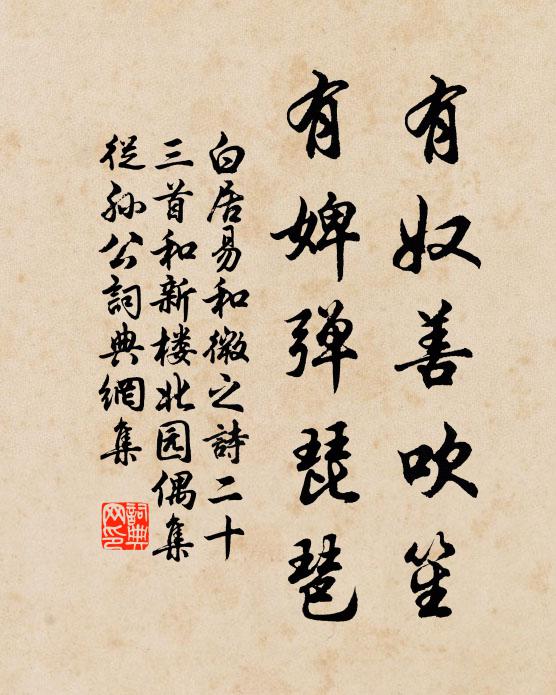 有奴善吹笙
有婢弹琵琶
白居易和微之詩二十
三首和新楼北园偶集
從孙公詞典網集
詞典
网印